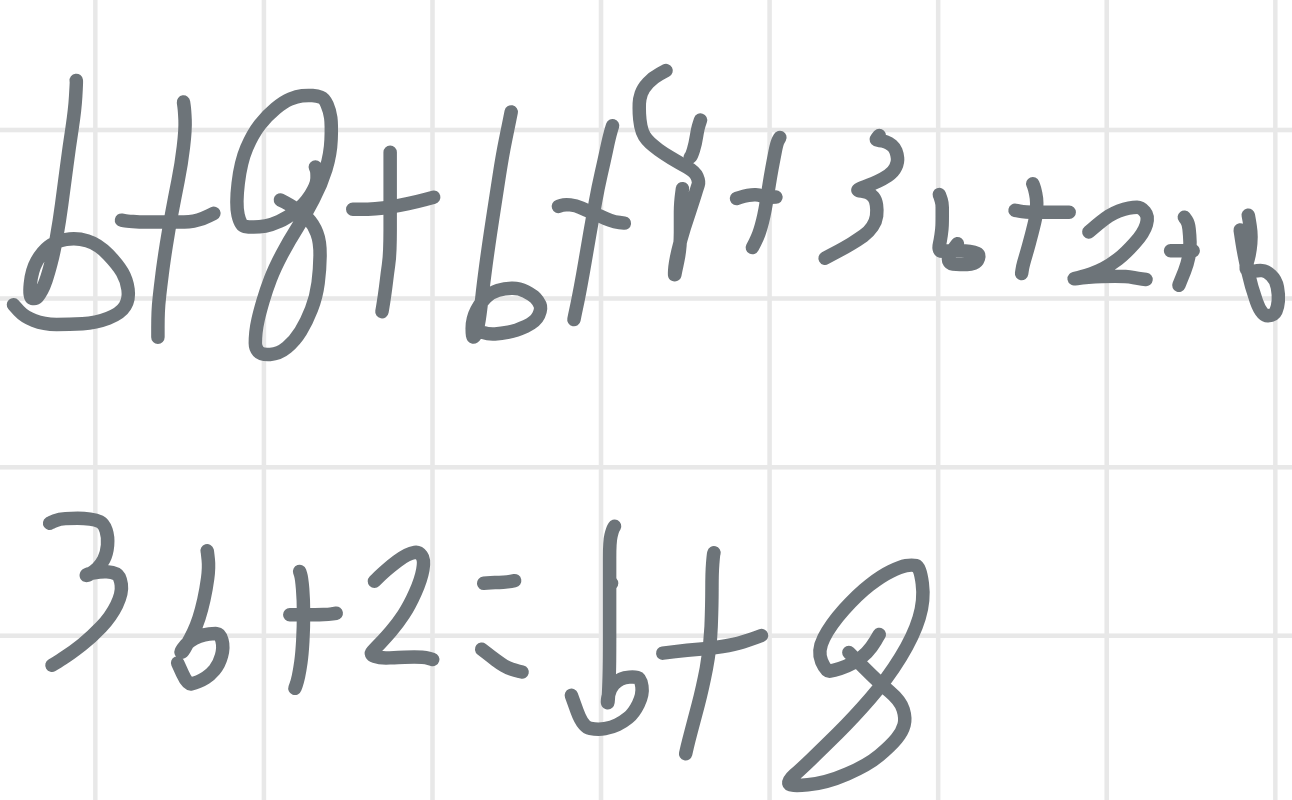 b+8+b+8+3b+2+b
3b+2=b+8